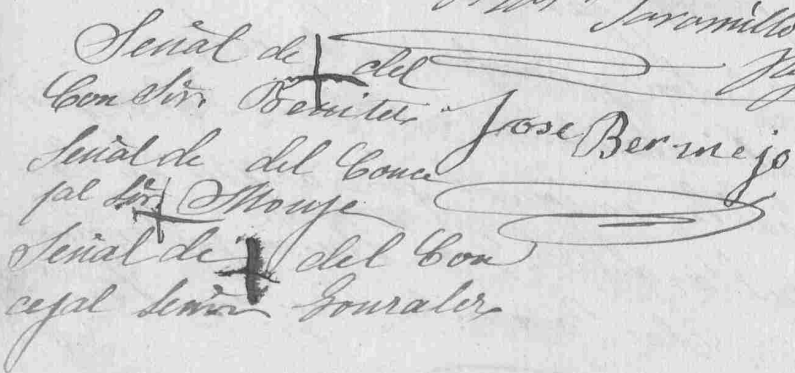 Jaramillo
Señal de + del
Con Sr. Benitez
Jose Bermejo
Señal de del Conce
jal Sr. + Monje
Señal de + del Con
cejal Señor Gonzalez